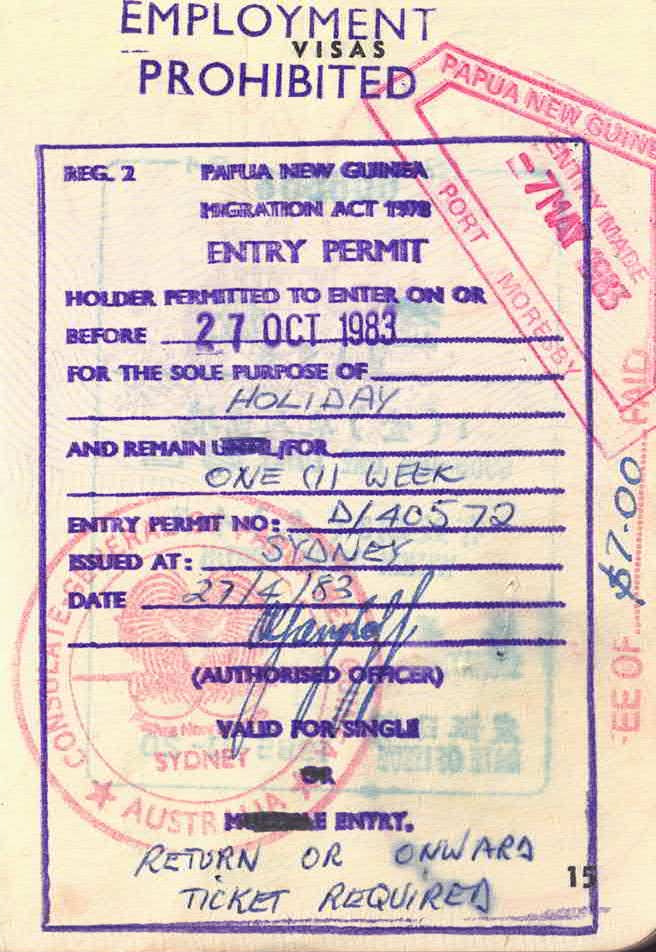 EMPLOYMENT
VISAS
PROHIBITED
PAPUA NEW GUINE
ENTRY MADE
-7 MAY 1983
PORT MORESBY
REG. 2 PAPUA NEW GUINEA
MIGRATION ACT 1978
ENTRY PERMIT
HOLDER PERMITTED TO ENTER ON OR
BEFORE 27 OCT 1983
FOR THE SOLE PURPOSE OF
HOLIDAY
AND REMAIN /FOR
ONE (1) WEEK
ENTRY PERMIT NO: D/40572
ISSUED AT: SYDNEY
DATE 27/4/83
(AUTHORISED OFFICER)
VALID FOR SINGLE
OR
ENTRY.
RETURN OR ONWARD
TICKET REQUIRED
15
EE OF $7.00 PAID
CONSULATE-GENERAL
SYDNEY
AUSTRALIA